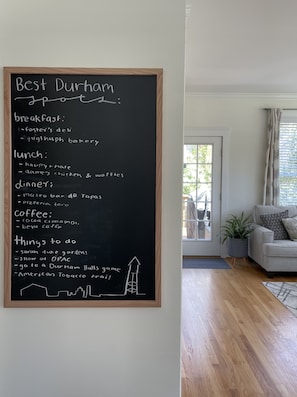 Best Durham
spots:
breakfast:
- foster's deli
- guglhupf bakery
lunch:
- dames chicken & waffles
dinner:
- mateo bar de tapas
- pizzeria toro
coffee:
- cocoa cinnamon
- beyu caffe
things to do
- sarah duke gardens
- show at DPAC
- go to a Durham Bulls game
- American Tobacco trail